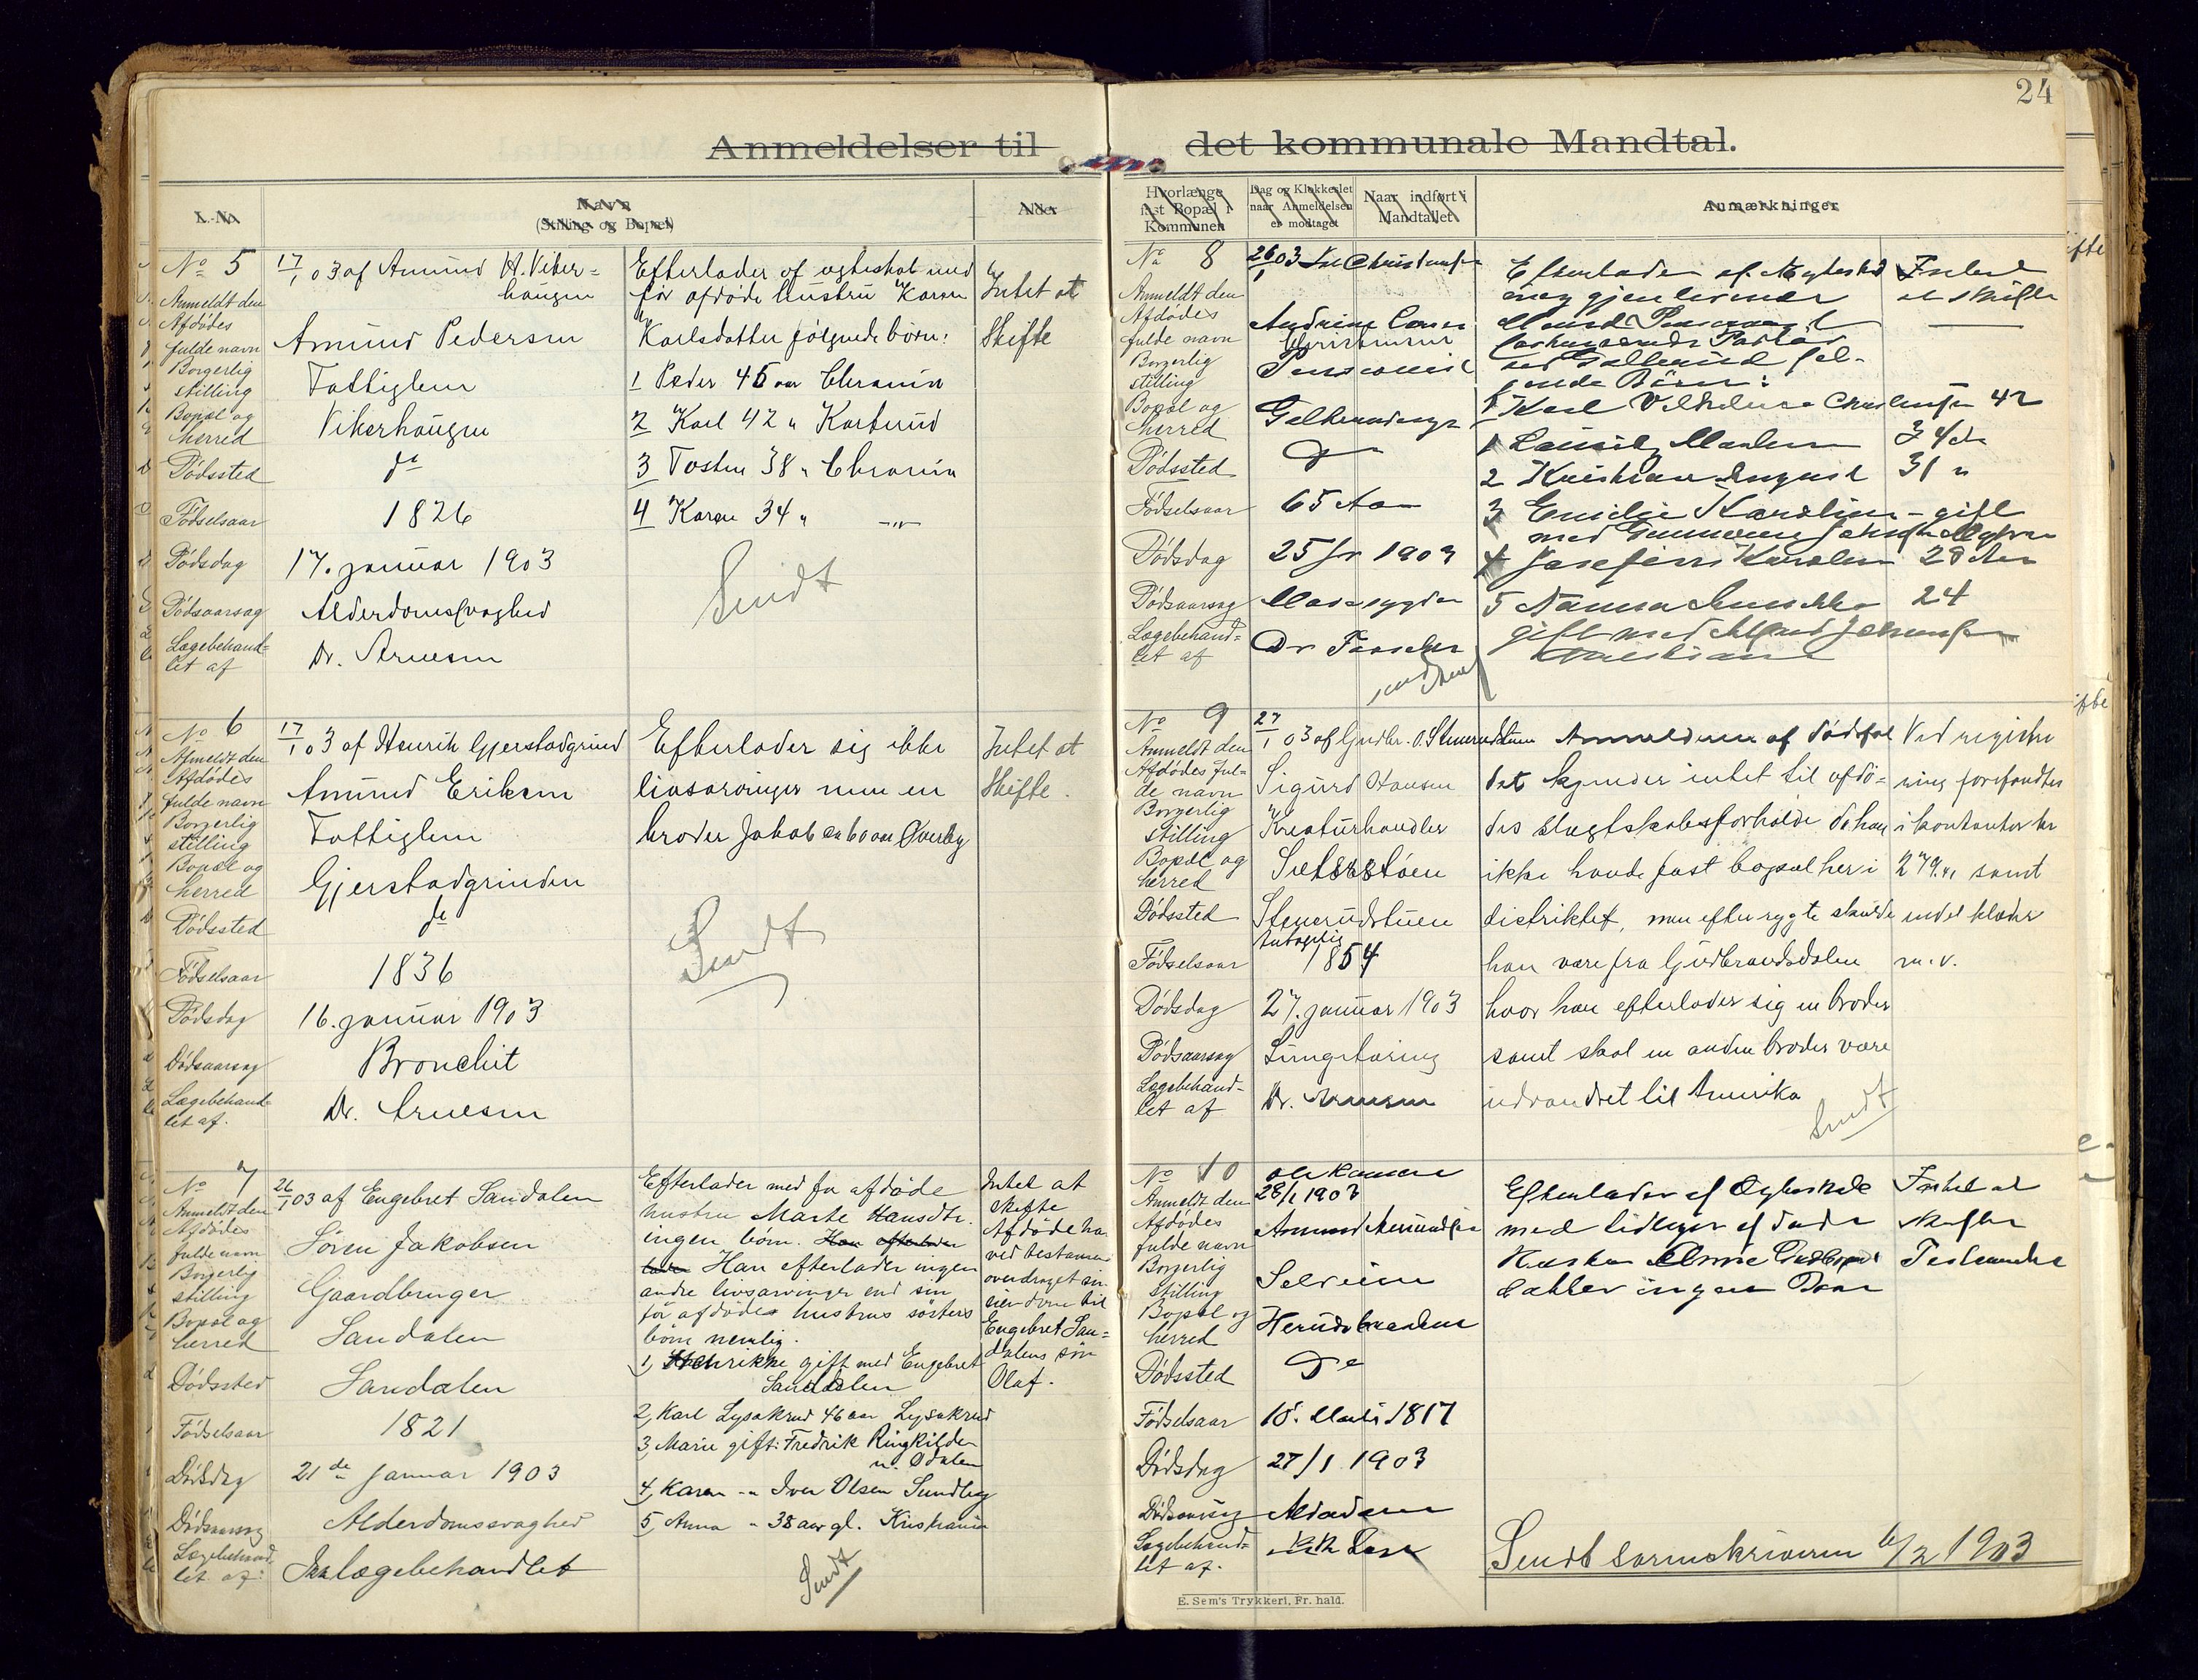 24
Anmeldelser til det kommunale Mandtal.
L.-No.
Navn
(Stilling og Bopæl)
Alder
Hvorlænge
fast Bopæl i
Kommunen
Dag og Klokkeslet
naar Anmeldelsen
er modtaget
Naar indført i
Mandtallet
Anmærkninger
No 5
17/1 03 af Amund A. Viker=
haugen
Anmeldt den
Afdødes
fulde navn
Amund Pedersen
Borgerlig
stilling
Fattiglem
Bopæl og
herred
Vikerhaugen
Dødssted
do
Fødselsaar
1826
Dødsdag
17. januar 1903
Dødsaarsag
Alderdomssvaghed
Lægebehand=
let af
Dr. Arnesen
Efterlader af ægteskab med
før afdøde hustru Karen
Karlsdatter følgende børn:
1 Peder 45 aar Chrania
2 Karl 42 " Karterud
3 Tosten 38 " Chrania
4 Karen 34 " -"-
Sendt
Intet at
Skifte
No 6
17/1 03 af Henrik Gjerstadgrind
Anmeldt den
Afdødes
fulde navn
Amund Eriksen
Borgerlig
stilling
Fattiglem
Bopæl og
herred
Gjerstadgrinden
Dødssted
do
Fødselsaar
1836
Dødsdag
16. januar 1903
Dødsaarsag
Bronchit
Lægebehand=
let af.
Dr. Arnesen
Efterlader sig ikke
livsarvinger men en
broder Jakob ca 60 aar Overby
Sendt
Intet at
Skifte.
No 7
26/1 03 af Engebret Sandalen
Anmeldt den
Afdødes
fulde navn
Søren Jakobsen
Borgerlig
stilling
Gaardbruger
Bopæl og
herred
Sandalen
Dødssted
Sandalen
Fødselsaar
1821
Dødsdag
21de Januar 1903
Dødsaarsag
Alderdomssvaghed
Lægebehand-
let af:
Ikke lægebehandlet
Efterlader med før afdøde
hustru Marte Hansdtr.
ingen børn. Han efterlader
Han efterlader ingen
andre livsarvinger end sin
før afdødes hustrus søsters
børn nemlig.
1, Henrikke gift med Engebret
Sandalen
2, Karl Lysakrud 46 aar Lysakrud
3, Marie gift: Fredrik Ringkilden
n. Odalen
4, Karen -" Iver Olsen Sundby
5, Anna " 38 aar gl. Kristiania
Sendt
Intet at
skifte
Afdøde har
ved testamen
overdraget sin
eiendom til
Engebret San=
dalens søn
Olaf.
No 8
26/1 03
Anmeldt den
Afdødes
fulde navn
Borgerlig
stilling
Bopæl og
herred
Dødssted
Do
Fødselsaar
65 Aar
Dødsdag
25 Jr 1903
Dødsaarsag
Mavesygdom
Lægebehand=
let af
Dr
Efterlader af Ægteskab
med gjenlevende
Børn:
1 Karl Vilhelm Christensen 42
34 do
2 Kristian August 31 "
3 Emilie Karoline - gift
med
4 Josefine Karoline 28 Aar
5 Nanna 24
gift med Alfred Johansen
Kristiania
Intet
at skifte
No 9
27/1 03 af Gudbr. O. Stenerudstuen
Anmeldt den
Afdødes ful=
de navn
Sigurd Hansen
Borgerlig
stilling
Kreaturhandler
Bopæl og
herred
Sætersstøen
Dødssted
Stenerudstuen
Fødselsaar
Antagelig
1854
Dødsdag
27. januar 1903
Dødsaarsag
Lungetæring
Lægebehand-
let af
Dr. Arnesen
Anmelderen af dødsfal
det kjender intet til afdø=
des slægtskabsforholde da han
ikke havde fast bopæl her i
distriktet, men efter rygte skulde
han være fra Gudbrandsdalen
hvor han efterlader sig en broder
samt skal en anden broder være
udvandret til Amerika
Sendt
Ved registre
ring forefandtes
i kontanter kr
279.41 samt
endel klæder
m.v.
No 10
Ole Hansen
28/1 1903
Anmeldt den
Afdødes
fulde navn
Amund Amundsen
Borgerlig
stilling
Selveier
Bopæl og
herred
Dødssted
Do
Fødselsaar
15. Marts 1817
Dødsdag
27/1 1903
Dødsaarsag
Alderdom
Lægebehand=
let af.
Efterlader af Ægteskab
med tidligere afdøde
Hustru Anne Gudbrands
datter ingen Børn
Intet at
skifte
Testamente
Sendt sorenskriveren 6/2 1903
E. Sem's Trykkeri, Fr. hald.